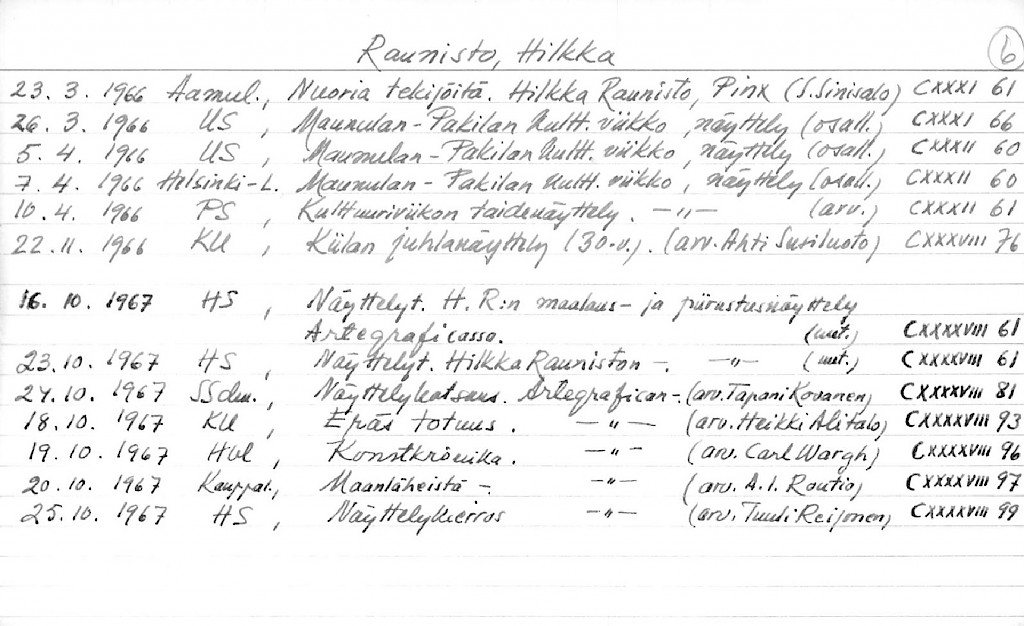 Raunisto, Hilkka 6
23. 3. 1966 Aamul., Nuoria tekijöitä. Hilkka Raunisto, Pinx (S.Sinisalo) CXXXI 61
26. 3. 1966 US, Maunulan-Pakilan kultt. viikko, näyttely (osall.) CXXXI 66
5. 4. 1966 US, Maunulan-Pakilan kultt. viikko, näyttely (osall.) CXXXII 60
7. 4. 1966 Helsinki-L. Maunulan-Pakilan kultt. viikko, näyttely (osall.) CXXXII 60
10. 4. 1966 PS, Kulttuuriviikon taidenäyttely. -"- (arv.) CXXXII 61
22. 11. 1966 KU, Kiilan juhlanäyttely (30-v.). (arv. Ahti Susiluoto) CXXXVIII 76
16. 10. 1967 HS, Näyttelyt. H. R:n maalaus- ja piirustusnäyttely
Artegraficassa. (uut.) CXXXXVIII 61
23. 10. 1967 HS, Näyttelyt. Hilkka Rauniston - -"- (uut.) CXXXXVIII 61
24. 10. 1967 SSdem., Näyttelykatsaus. Artegrafican-. (arv. Tapani Kovanen) CXXXXVIII 81
18. 10. 1967 KU, Eräs totuus. -"- (arv. Heikki Alitalo) CXXXXVIII 93
19. 10. 1967 Hbl, Konstkrönika. -"- (arv. Carl Wargh) CXXXXVIII 96
20. 10. 1967 Kauppal., Maanläheistä - -"- (arv. A.I. Routio) CXXXXVIII 97
25. 10. 1967 HS, Näyttelykierros -"- (arv. Tuuli Reijonen) CXXXXVIII 99